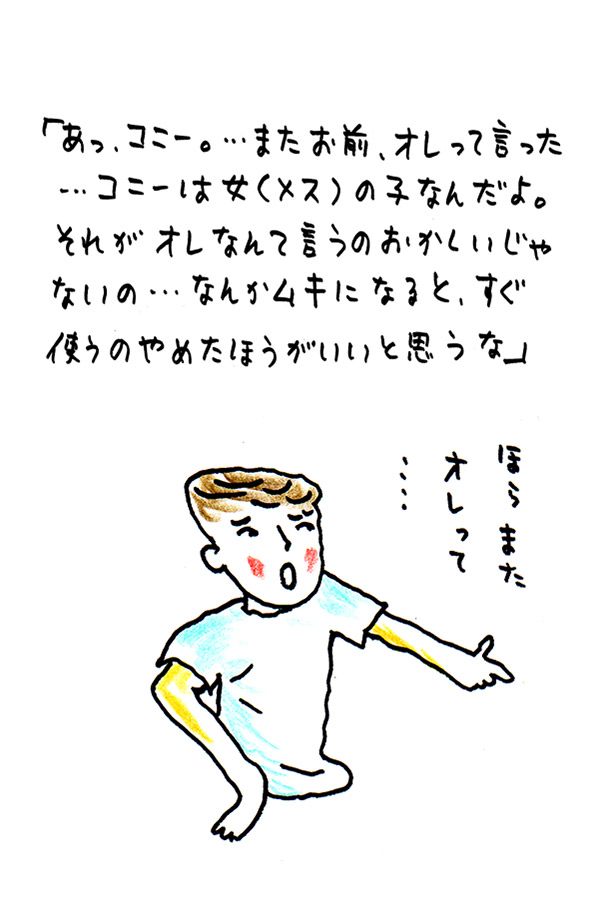 「あっ、コニー。…またお前、オレって言った
…コニーは女(メス)の子なんだよ。
それがオレなんて言うのおかしいじゃ
ないの…なんかムキになると、すぐ
使うのやめたほうがいいと思うな」
ほらまた
オレって
……